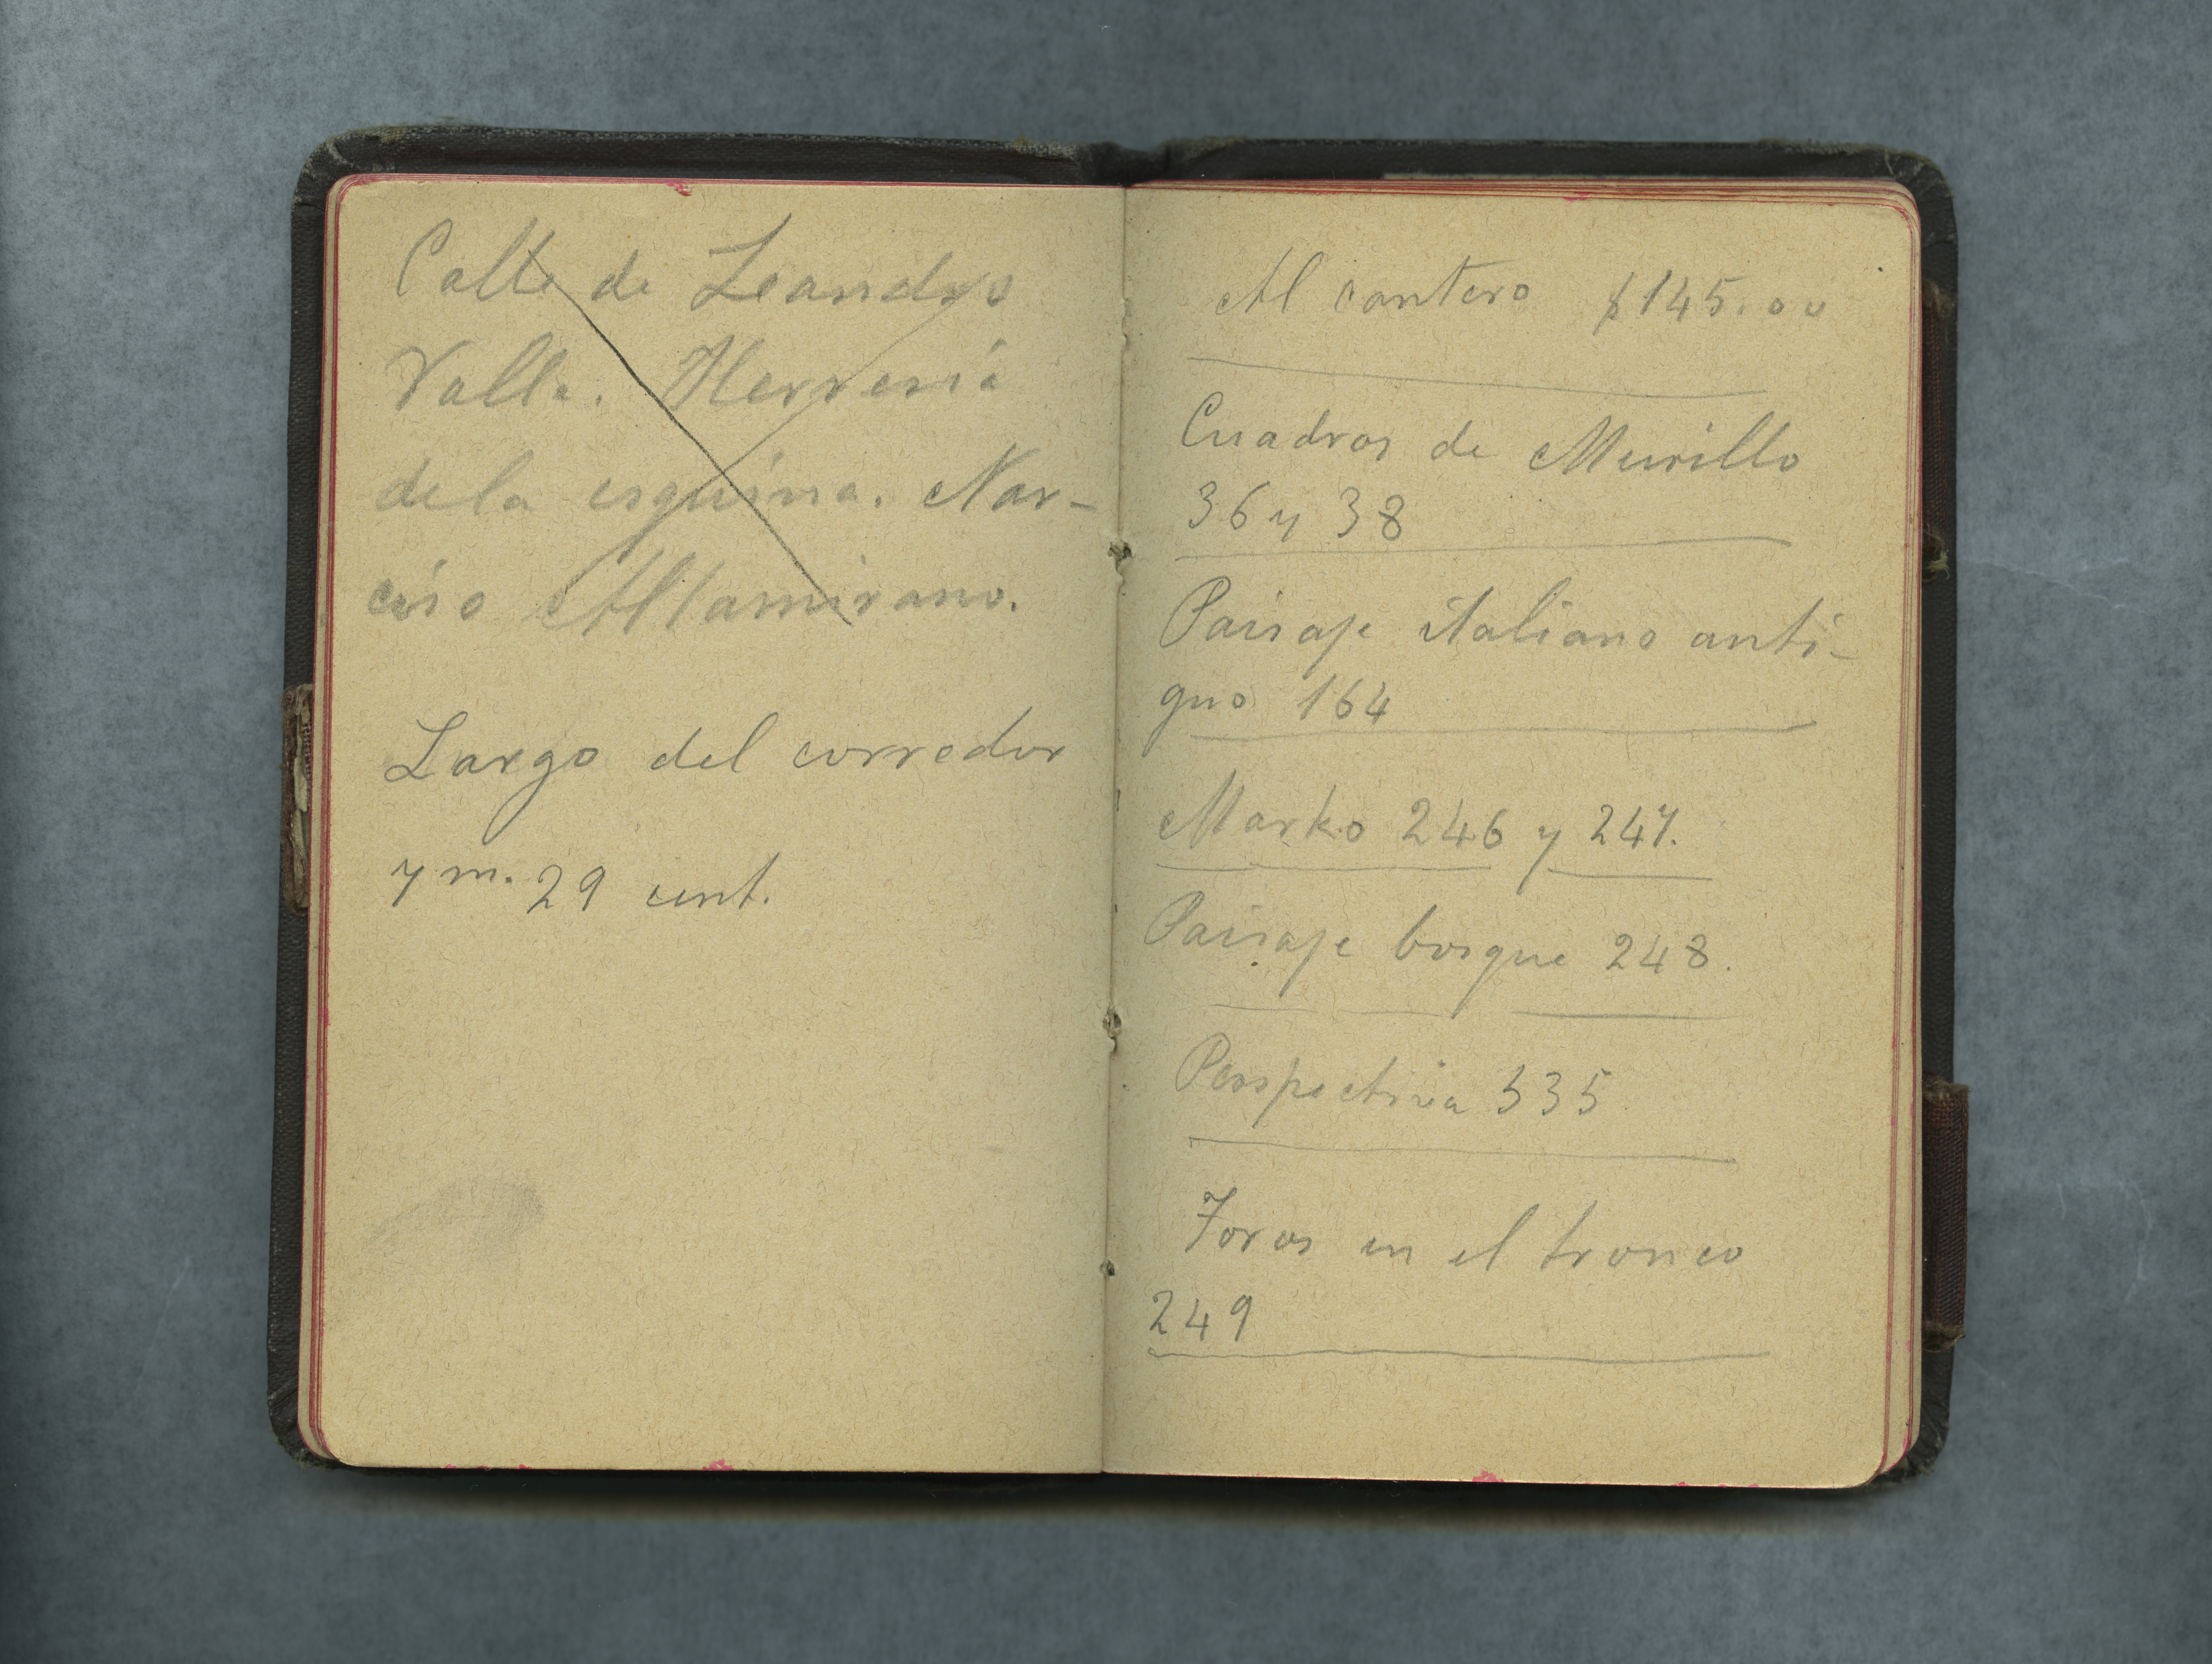 Calle de Leandro
Valle. Herreria
de la esquina. Nar-
ciso Altamirano.
Largo del corredor
7 m. 29 cent.
Al cantero $145.00
Cuadros de Murillo
36 y 38
Paisaje italiano anti-
guo 164
Marko 246 y 247.
Paisaje bosque 248.
Perspectiva 335
Toros en el tronco
249